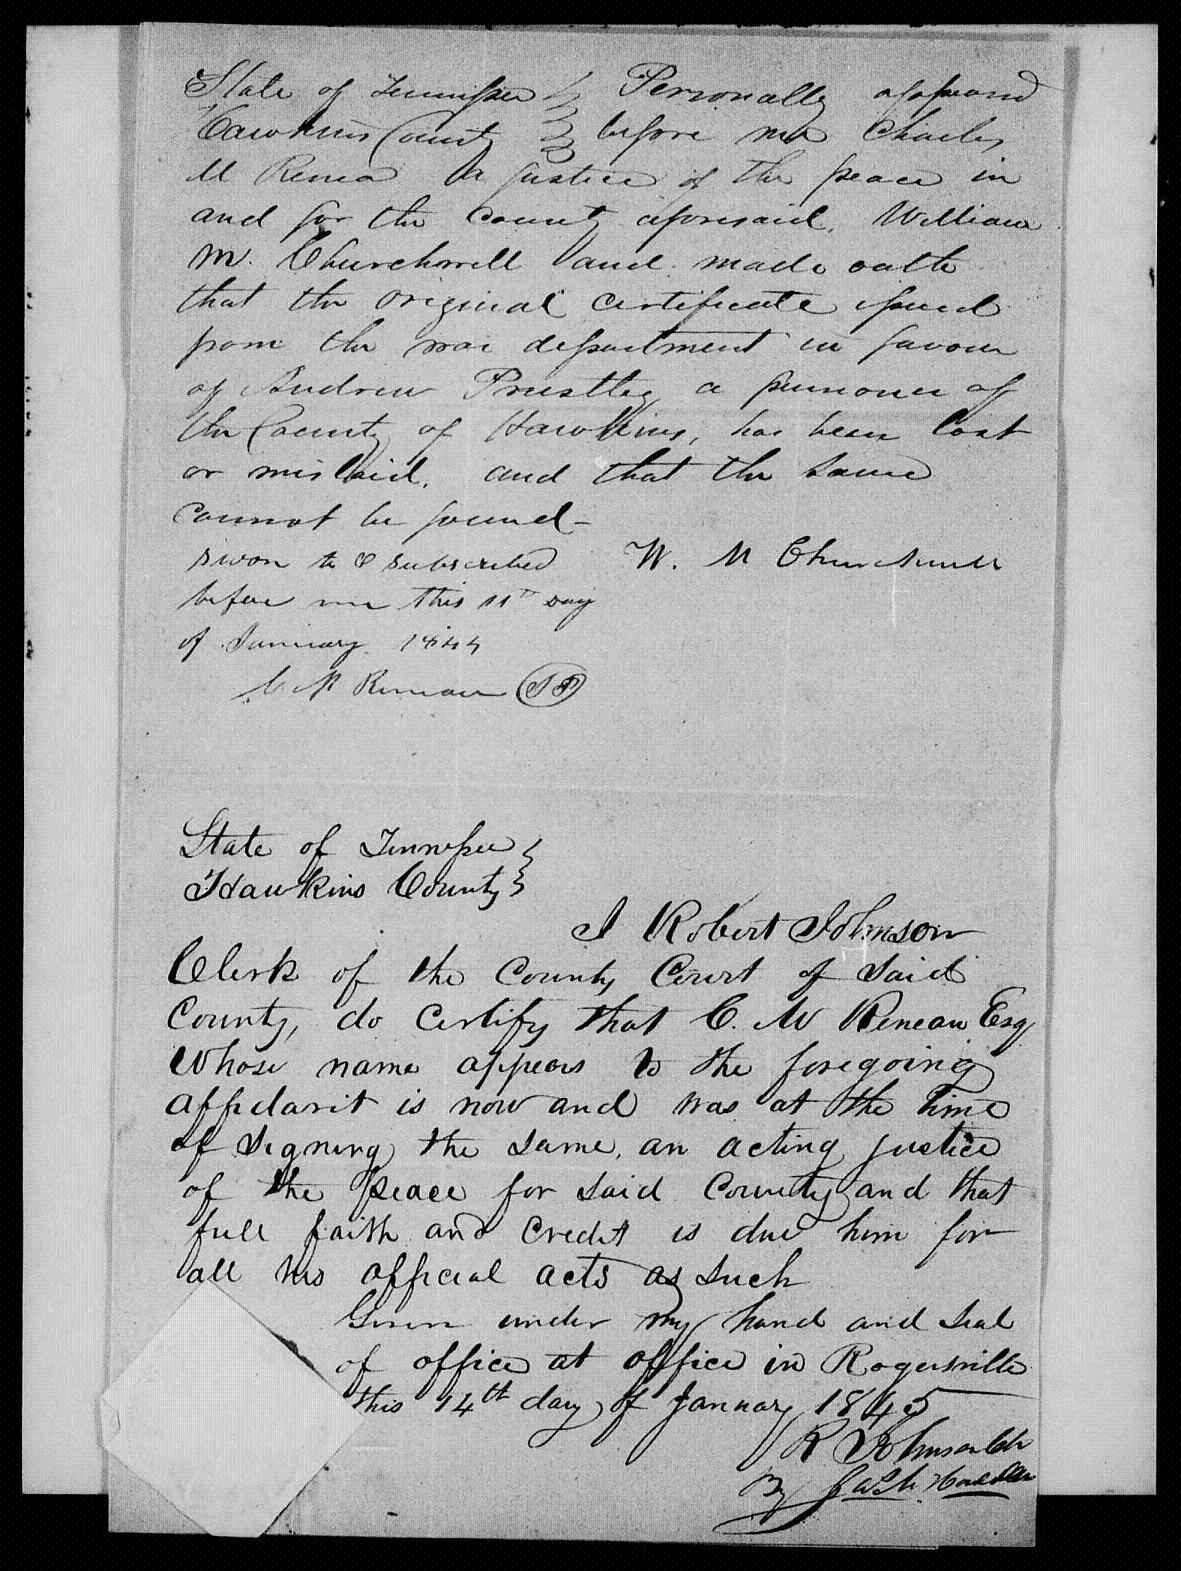 State of Tennessee } Personally appeared
Hawkins County } before me Charles
M Reneau a justice of the peace in
and for the County aforesaid, William
M. Churchwell and made oath
that the original certificate issued
from the war department in favour
of Andrew Priestley a pensioner of
the County of Hawkins, has been lost
or mislaid, and that the same
cannot be found –
sworn to & subscribed W. M Churchwell
before me this 11th day
of January 1844
C M Reneau JP
State of Tennessee }
Hawkins County }
I Robert Johnson
Clerk of the County Court of Said
County, do certify that C. M Reneau Esq
whose name appears to the foregoing
affidavit is now and was at the time
of signing the same, an acting justice
of the peace for said County and that
full faith and credit is due him for
all his official acts as such
Given under my hand and seal
of office at office in Rogersville
this 14th day of January 1845
R Johnson Clk
By